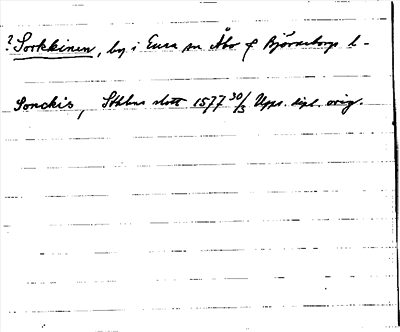 ? Sorkkinen, by i Eura sn Åbo & Björneborgs l-
Sonckis, Sthlms slott 1577 30/3 Upps. dipl. orig.